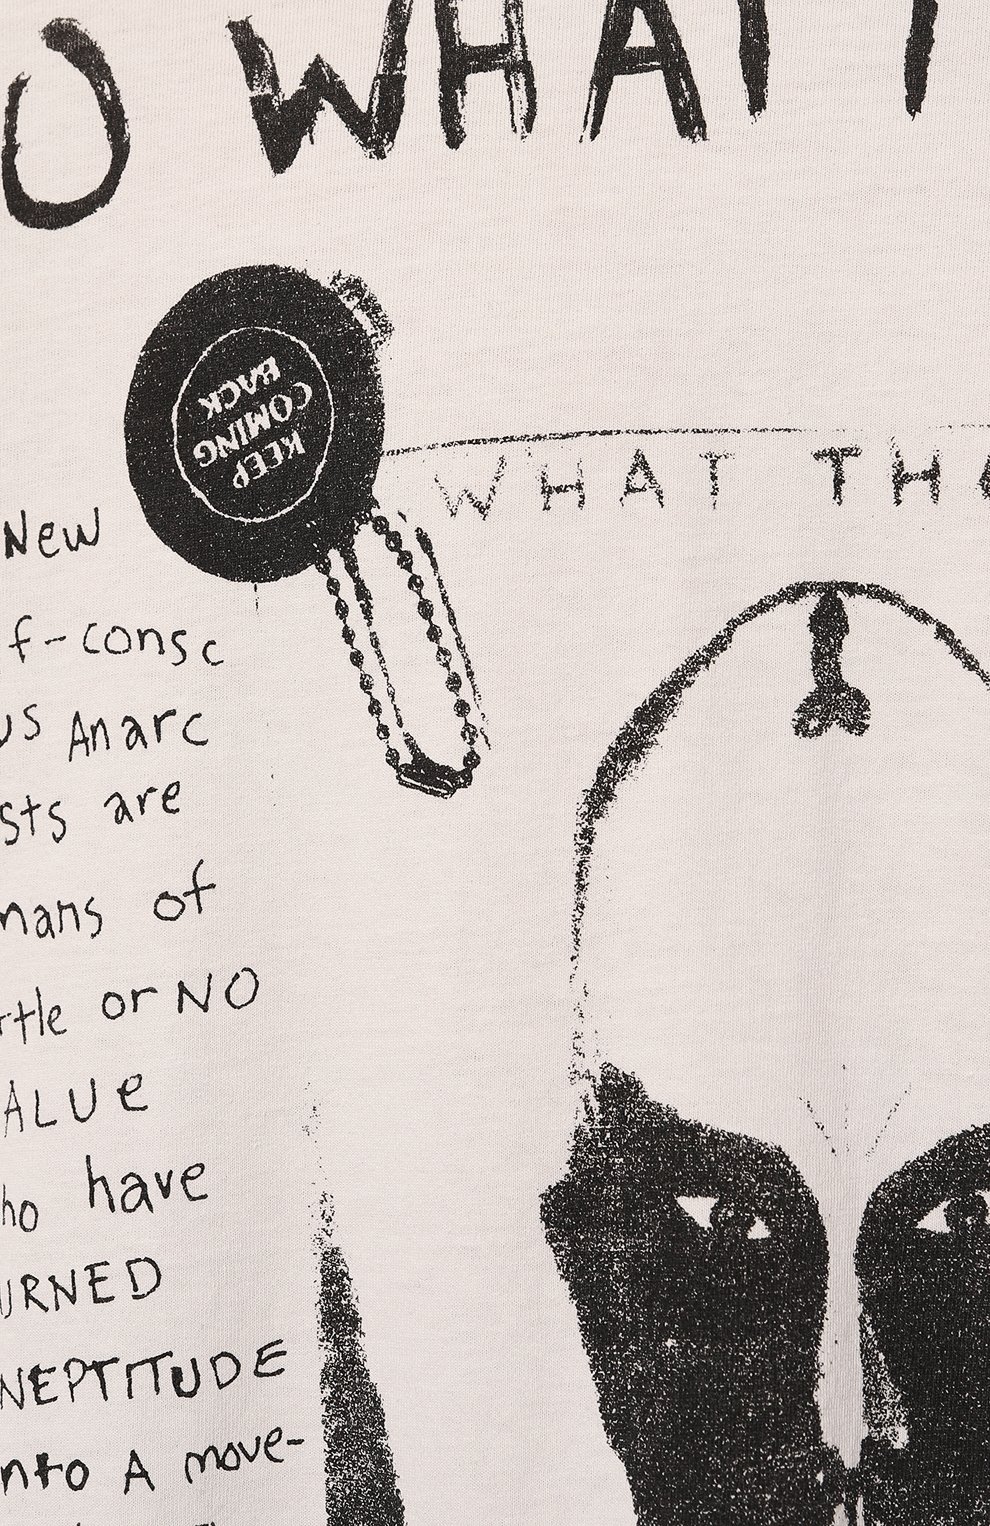 O WHAT T
KEEP
COMING
BACK
WHAT THA
New
f-consc
us Anarc
sts are
mans of
rtle or NO
ALUE
ho have
URNED
NEPTITUDE
nto A move-